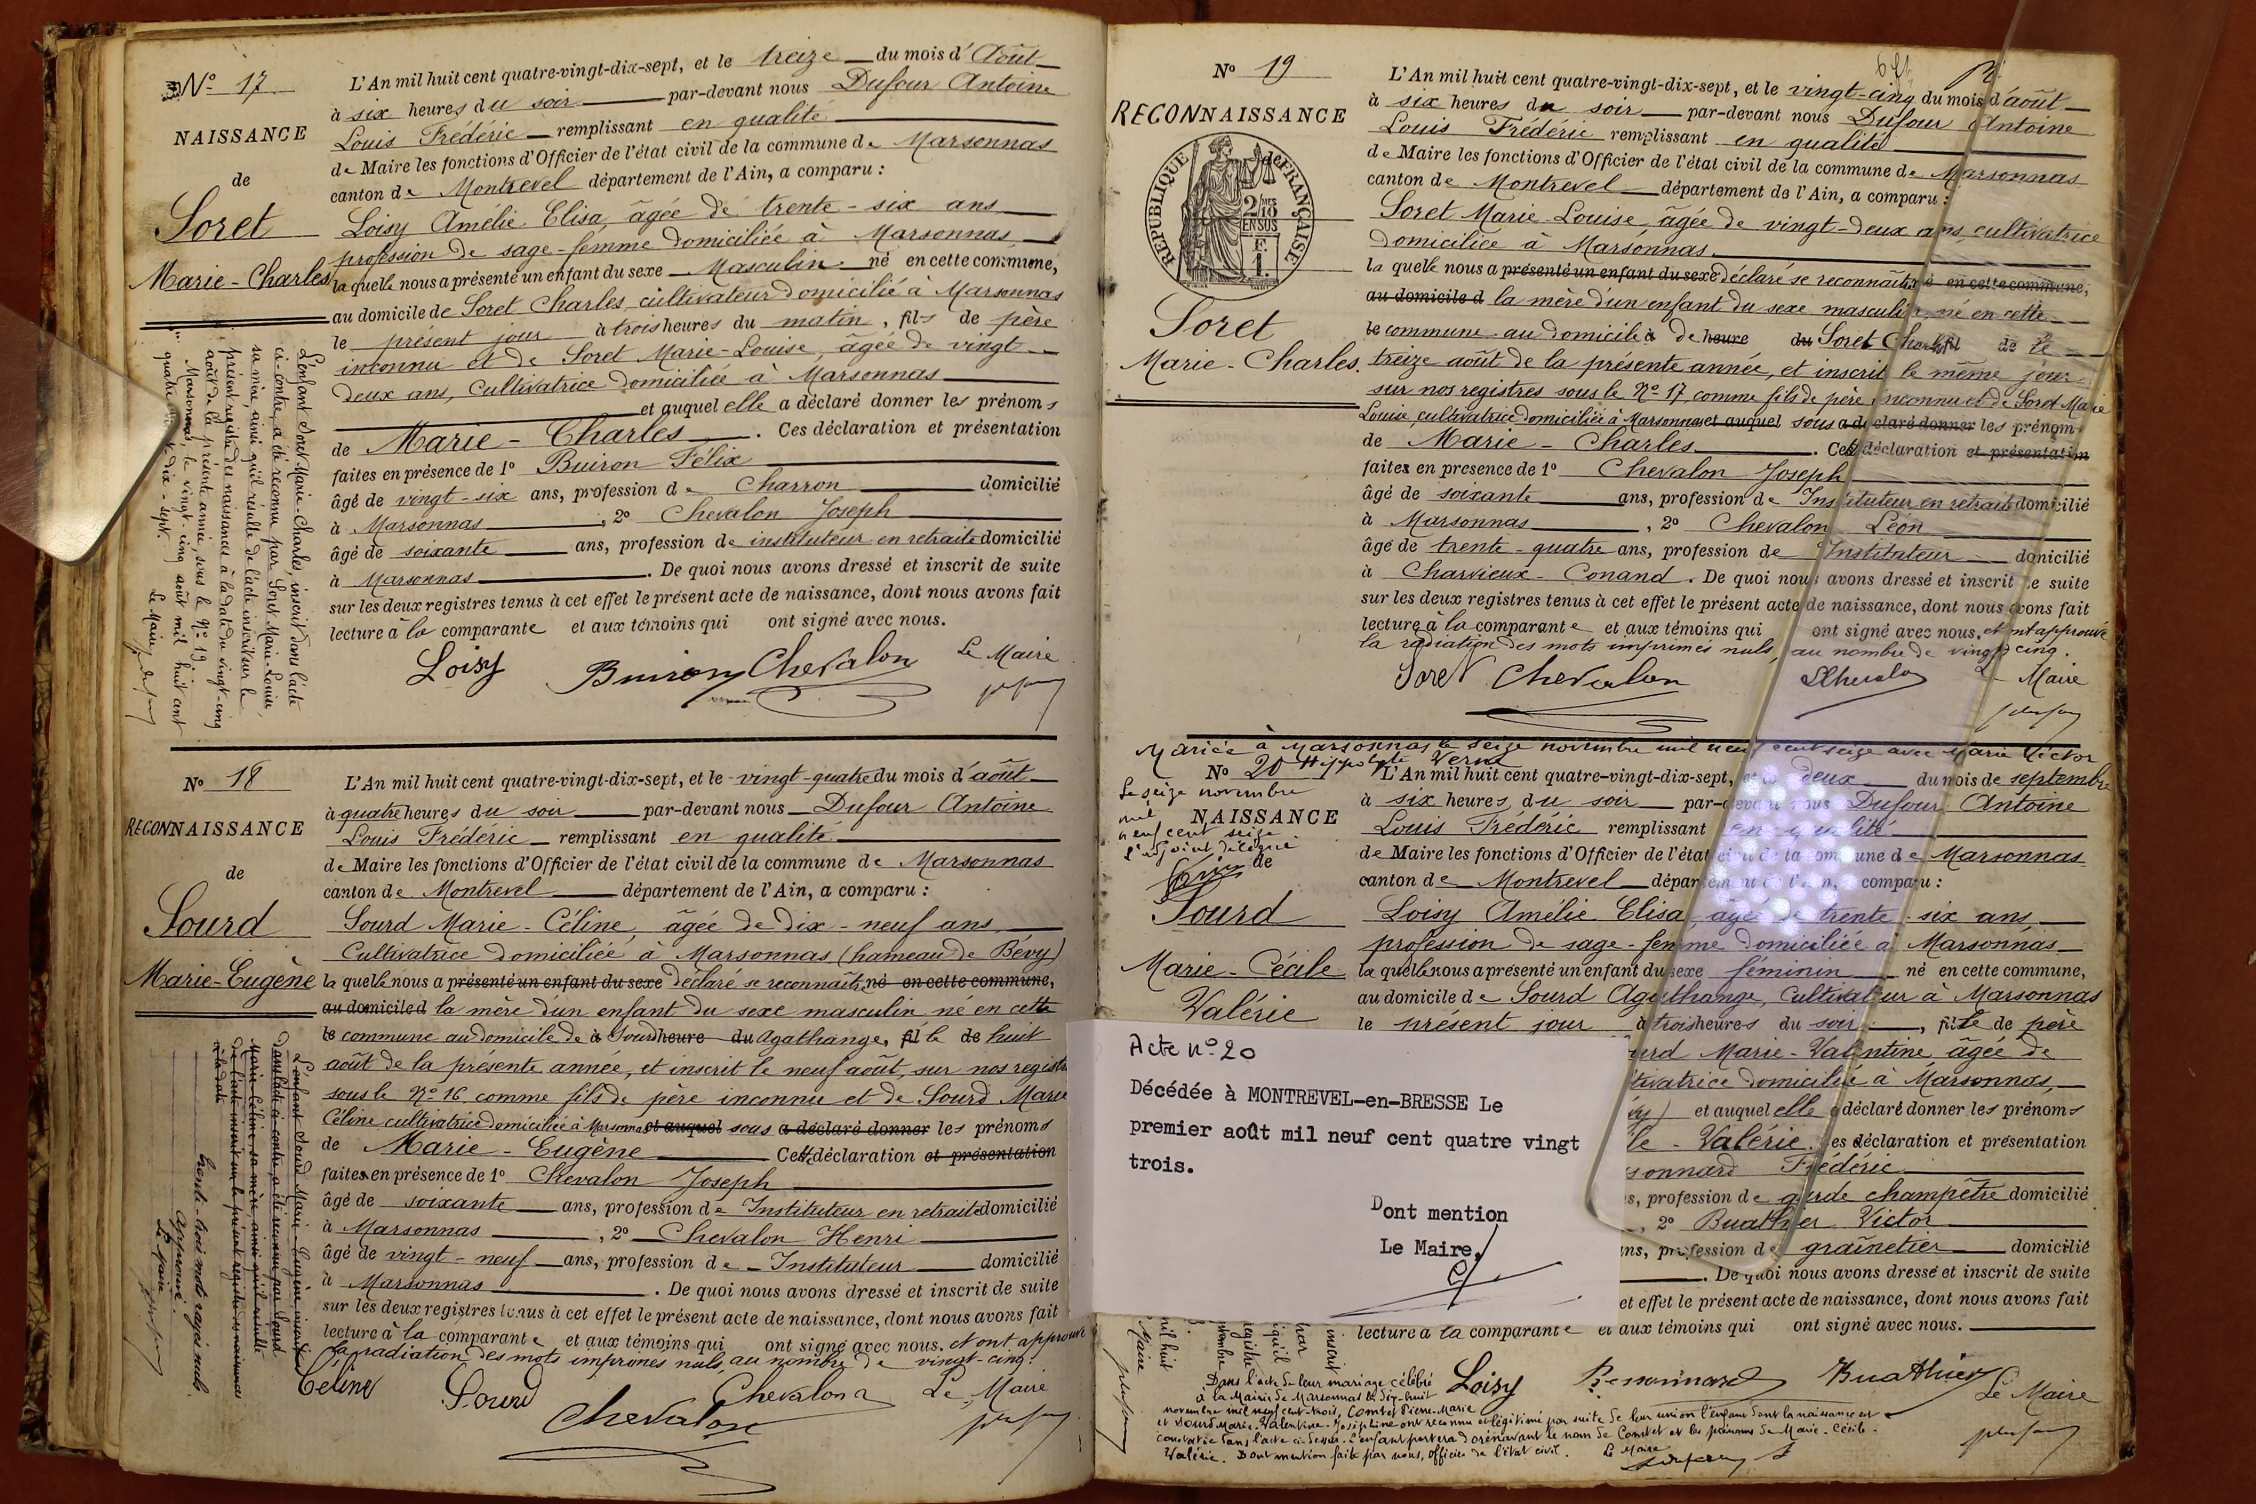 Nº 17
NAISSANCE
de
Soret
Marie-Charles
L'An mil huit cent quatre-vingt-dix-sept, et le treize du mois d'Août
à six heures du soir par-devant nous Dufour Antoine
Louis Frédéric remplissant en qualité
de Maire les fonctions d'Officier de l'état civil de la commune de Marsonnas
canton de Montrevel département de l'Ain, a comparu :
Loisy Amélie Elisa, âgée de trente-six ans
profession de sage-femme domiciliée à Marsonnas
laquelle nous a présenté un enfant du sexe Masculin né en cette commune,
au domicile de Soret Charles, cultivateur domicilié à Marsonnas
le présent jour à trois heures du matin, fils de père
inconnu et de Soret Marie-Louise, âgée de vingt-
deux ans, Cultivatrice domiciliée à Marsonnas
et auquel elle a déclaré donner les prénoms
de Marie-Charles. Ces déclaration et présentation
faites en présence de 1º Buiron Félix
âgé de vingt-six ans, profession de Charron domicilié
à Marsonnas, 2º Chevalon Joseph
âgé de soixante ans, profession de instituteur en retraite domicilié
à Marsonnas. De quoi nous avons dressé et inscrit de suite
sur les deux registres tenus à cet effet le présent acte de naissance, dont nous avons fait
lecture à la comparante et aux témoins qui ont signé avec nous.
Loisy Buiron Chevalon Le Maire
L'enfant Soret Marie-Charles, inscrit dans l'acte
ci-contre, a été reconnu par Soret Marie-Louise,
sa mère, ainsi qu'il résulte de l'acte inscrit sur le
présent registre des naissances à la date du vingt-cinq
août de la présente année, sous le Nº 19.
Marsonnas, le vingt-cinq août mil huit cent
quatre-vingt-dix-sept.
Le Maire,
Nº 18
RECONNAISSANCE
de
Sourd
Marie-Eugène
L'An mil huit cent quatre-vingt-dix-sept, et le vingt-quatre du mois d'août
à quatre heures du soir par-devant nous Dufour Antoine
Louis Frédéric remplissant en qualité
de Maire les fonctions d'Officier de l'état civil de la commune de Marsonnas
canton de Montrevel département de l'Ain, a comparu :
Sourd Marie-Céline, âgée de dix-neuf ans
Cultivatrice domiciliée à Marsonnas (hameau de Bévy)
laquelle nous a présenté un enfant du sexe déclaré se reconnaître né en cette commune,
au domicile d la mère d'un enfant du sexe masculin né en cette
le commune au domicile de à Sourd heure du Agathange, fil le de huit
août de la présente année, et inscrit le neuf août, sur nos registres
sous le Nº 16 comme fils de père inconnu et de Sourd Marie
Céline cultivatrice domiciliée à Marsonnas et auquel sous a déclaré donner les prénoms
de Marie-Eugène Cette déclaration et présentation
faites en présence de 1º Chevalon Joseph
âgé de soixante ans, profession de Instituteur en retraite domicilié
à Marsonnas, 2º Chevalon Henri
âgé de vingt-neuf ans, profession de Instituteur domicilié
à Marsonnas. De quoi nous avons dressé et inscrit de suite
sur les deux registres tenus à cet effet le présent acte de naissance, dont nous avons fait
lecture à la comparante et aux témoins qui ont signé avec nous. et ont approuvé
la radiation des mots imprimés nuls, au nombre de vingt-cinq.
Céline Sourd Chevalon Chevalon Le Maire
L'enfant Sourd Marie-Eugène inscrit
dans l'acte ci-contre a été reconnu par Sourd
Marie-Céline sa mère, ainsi qu'il résulte
de l'acte inscrit sur le présent registre des naissances
à la date
trente-trois mots rayés nuls.
Approuvé.
Le Maire
Nº 19
RECONNAISSANCE
de
REPUBLIQUE FRANÇAISE
2/10 MES
EN SUS
F.
1.
Soret
Marie-Charles.
L'An mil huit cent quatre-vingt-dix-sept, et le vingt-cinq du mois d'août
à six heures du soir par-devant nous Dufour Antoine
Louis Frédéric remplissant en qualité
de Maire les fonctions d'Officier de l'état civil de la commune de Marsonnas
canton de Montrevel département de l'Ain, a comparu :
Soret Marie-Louise, âgée de vingt-deux ans, cultivatrice
domiciliée à Marsonnas
laquelle nous a présenté un enfant du sexe déclaré se reconnaître né en cette commune,
au domicile d la mère d'un enfant du sexe masculin, né en cette
le commune au domicile à de heure du Soret Charles fil de le
treize août de la présente année, et inscrit le même jour
sur nos registres sous le Nº 17 comme fils de père inconnu et de Soret Marie
Louise, cultivatrice domiciliée à Marsonnas et auquel sous a déclaré donner les prénoms
de Marie-Charles. Cette déclaration et présentation
faites en présence de 1º Chevalon Joseph
âgé de soixante ans, profession de Instituteur en retraite domicilié
à Marsonnas, 2º Chevalon Léon
âgé de trente-quatre ans, profession de Instituteur domicilié
à Charvieux-Conand. De quoi nous avons dressé et inscrit de suite
sur les deux registres tenus à cet effet le présent acte de naissance, dont nous avons fait
lecture à la comparante et aux témoins qui ont signé avec nous. et ont approuvé
la radiation des mots imprimés nuls, au nombre de vingt-cinq.
Soret Chevalon LChevalon Le Maire
Mariée à Marsonnas le seize novembre mil neuf cent seize avec Marie Victor
Hippolyte Verne
Le seize novembre
mil
neuf cent seize
l'adjoint délégué
Nº 20
NAISSANCE
de
Sourd
Marie-Cécile
Valérie
L'An mil huit cent quatre-vingt-dix-sept, et le deux du mois de septembre
à six heures du soir par-devant nous Dufour Antoine
Louis Frédéric remplissant en qualité
de Maire les fonctions d'Officier de l'état civil de la commune de Marsonnas
canton de Montrevel département de l'Ain, a comparu :
Loisy Amélie Elisa, âgée de trente-six ans
profession de sage-femme domiciliée à Marsonnas
laquelle nous a présenté un enfant du sexe féminin né en cette commune,
au domicile de Sourd Agathange, Cultivateur à Marsonnas
le présent jour à trois heures du soir, fille de père
urd Marie-Valentine âgée de
tivatrice domiciliée à Marsonnas,
vy) et auquel elle a déclaré donner les prénoms
le-Valérie. es déclaration et présentation
sonnard Frédéric
s, profession de garde champêtre domicilié
, 2º Buathier Victor
ans, profession de grainetier domicilié
. De quoi nous avons dressé et inscrit de suite
et effet le présent acte de naissance, dont nous avons fait
lecture à la comparante et aux témoins qui ont signé avec nous.
Acte nº 20
Décédée à MONTREVEL-en-BRESSE Le
premier août mil neuf cent quatre vingt
trois.
Dont mention
Le Maire,
Loisy Buathier Le Maire
Dans l'acte de leur mariage célébré
à la Mairie de Marsonnas le dix-huit
novembre mil neuf cent-trois, Comtet Pierre-Marie
et Sourd Marie-Valentine-Joséphine ont reconnu et légitimé par suite de leur union l'enfant dont la naissance est
constatée dans l'acte ci-dessus. L'enfant portera dorénavant le nom de Comtet et les prénoms de Marie-Cécile-
Valérie. Dont mention faite par nous, officier de l'état civil. Le Maire